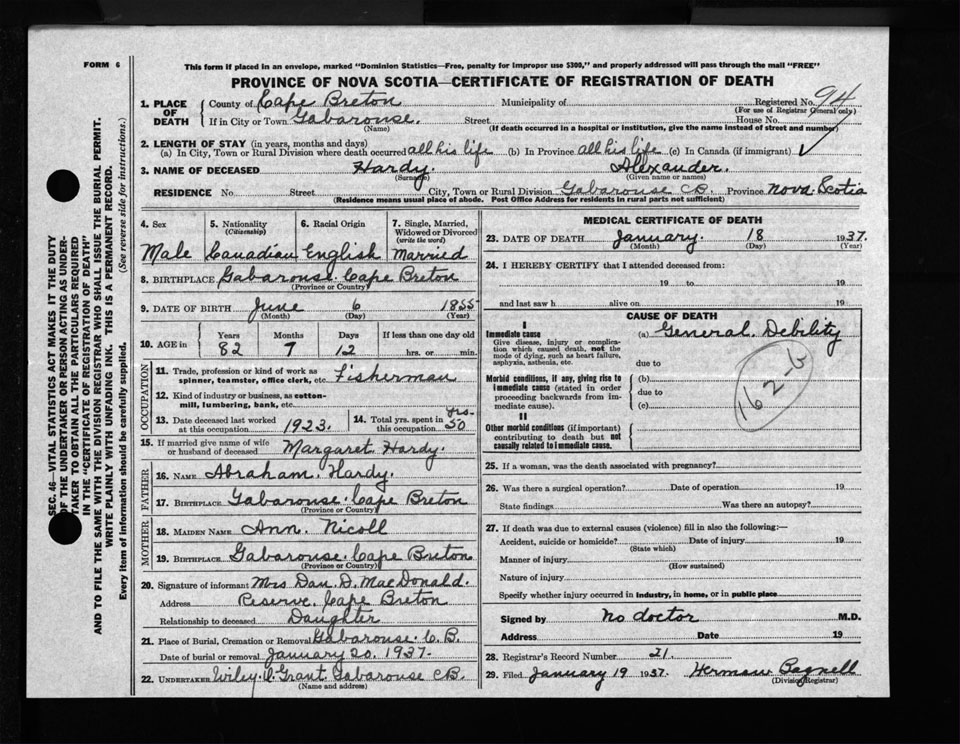 FORM 6
This form if placed in an envelope, marked "Dominion Statistics—Free, penalty for improper use $300," and properly addressed will pass through the mail "FREE"
PROVINCE OF NOVA SCOTIA—CERTIFICATE OF REGISTRATION OF DEATH
1. PLACE OF DEATH
County of Cape Breton Municipality of Registered No. 94
(For use of Registrar General only)
If in City or Town Gabarouse. Street House No.
(Name) (If death occurred in a hospital or institution, give the name instead of street and number)
2. LENGTH OF STAY (in years, months and days)
(a) In City, Town or Rural Division where death occurred all his life (b) In Province all his life (c) In Canada (if immigrant)
3. NAME OF DECEASED Hardy. Alexander.
(Surname) (Given name or names)
RESIDENCE No. Street City, Town or Rural Division Gabarouse CB. Province Nova Scotia
(Residence means usual place of abode. Post Office Address for residents in rural parts not sufficient)
4. Sex
Male
5. Nationality
(Citizenship)
Canadian
6. Racial Origin
English
7. Single, Married, Widowed or Divorced
(write the word)
Married
8. BIRTHPLACE Gabarouse. Cape Breton
(Province or Country)
9. DATE OF BIRTH June 6 1855
(Month) (Day) (Year)
10. AGE in
Years Months Days If less than one day old
82 7 12 hrs. or min.
OCCUPATION
11. Trade, profession or kind of work as spinner, teamster, office clerk, etc. Fisherman
12. Kind of industry or business, as cotton-mill, lumbering, bank, etc.
13. Date deceased last worked at this occupation 1923.
14. Total yrs. spent in this occupation 50 yrs.
15. If married give name of wife or husband of deceased Margaret Hardy.
FATHER
16. NAME Abraham. Hardy.
17. BIRTHPLACE Gabarouse. Cape Breton
(Province or Country)
MOTHER
18. MAIDEN NAME Ann. Nicoll
19. BIRTHPLACE Gabarouse. Cape Breton
(Province or Country)
20. Signature of informant Mrs Dan. D. MacDonald.
Address Reserve. Cape Breton
Relationship to deceased Daughter
21. Place of Burial, Cremation or Removal Gabarouse. C.B.
Date of burial or removal January 20. 1937.
22. UNDERTAKER Wiley. Grant Gabarouse CB.
(Name and address)
MEDICAL CERTIFICATE OF DEATH
23. DATE OF DEATH January. 18 1937.
(Month) (Day) (Year)
24. I HEREBY CERTIFY that I attended deceased from:
19 to 19
and last saw h alive on 19
CAUSE OF DEATH
I
Immediate cause (a) General. Debility
Give disease, injury or complication which caused death, not the mode of dying, such as heart failure, asphyxia, asthenia, etc.
due to
Morbid conditions, if any, giving rise to immediate cause (stated in order proceeding backwards from immediate cause).
(b)
due to
(c)
162-b
II
Other morbid conditions (if important) contributing to death but not causally related to immediate cause.
25. If a woman, was the death associated with pregnancy?
26. Was there a surgical operation? Date of operation 19
State findings Was there an autopsy?
27. If death was due to external causes (violence) fill in also the following:—
Accident, suicide or homicide? Date of injury 19
(State which)
Manner of injury
(How sustained)
Nature of injury
Specify whether injury occurred in industry, in home, or in public place
Signed by No doctor M.D.
Address Date 19
28. Registrar's Record Number 21.
29. Filed January 19 1937. Herman Bagnell
(Division Registrar)
SEC. 46—VITAL STATISTICS ACT MAKES IT THE DUTY
OF THE UNDERTAKER OR PERSON ACTING AS UNDER-
TAKER TO OBTAIN ALL THE PARTICULARS REQUIRED
IN THE "CERTIFICATE OF REGISTRATION OF DEATH"
AND TO FILE THE SAME WITH THE DIVISION REGISTRAR WHO SHALL ISSUE THE BURIAL PERMIT.
WRITE PLAINLY WITH UNFADING INK. THIS IS A PERMANENT RECORD.
Every item of information should be carefully supplied. (See reverse side for instructions.)